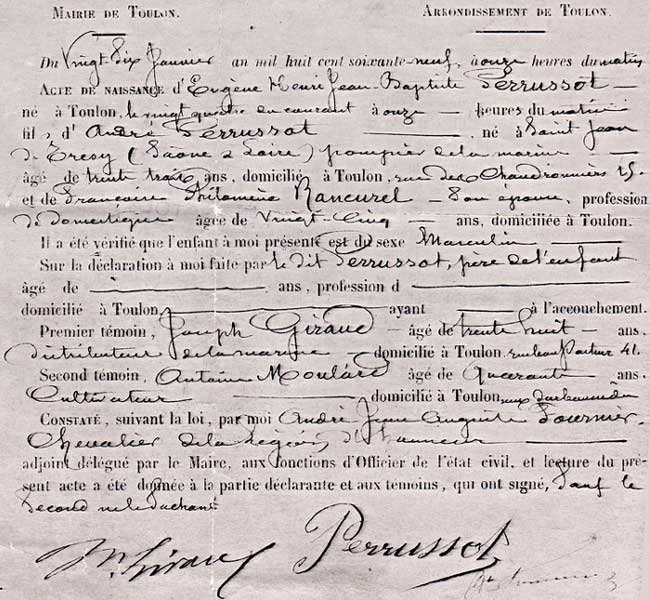 MAIRIE DE TOULON. ARRONDISSEMENT DE TOULON.
Du Vingt Six Janvier an mil huit cent soixante-neuf, à onze heures du matin
ACTE DE NAISSANCE d'Eugène Henri Jean-Baptiste Perrussot —
né à Toulon, le vingt quatre du courant à onze — heures du matin
fils d'André Perrussot — né à Saint Jean
de Trésy (Saône & Loire) pompier de la marine —
âgé de trente trois ans, domicilié à Toulon, rue des Chaudronniers 25
et de Françoise Philomène Rancurel — Son épouse, profession
de domestique âgée de Vingt-Cinq — ans, domiciliée à Toulon.
Il a été vérifié que l'enfant à moi présenté est du sexe Masculin —
Sur la déclaration à moi faite par le dit Perrussot, père de l'enfant
âgé de — ans, profession d —
domicilié à Toulon — ayant — à l'accouchement.
Premier témoin, Joseph Giraud — âgé de trente huit — ans.
distributeur de la marine — domicilié à Toulon, 41.
Second témoin, Antoine Moulard âgé de Quarante ans.
Cultivateur — domicilié à Toulon
CONSTATÉ, suivant la loi, par moi André Jean Auguste Fournier,
Chevalier de la Légion d'honneur —
adjoint délégué par le Maire, aux fonctions d'Officier de l'état civil, et lecture du pré-
sent acte a été donnée à la partie déclarante et aux témoins, qui ont signé, Sauf le
Second ne le Sachant
Giraud Perrussot